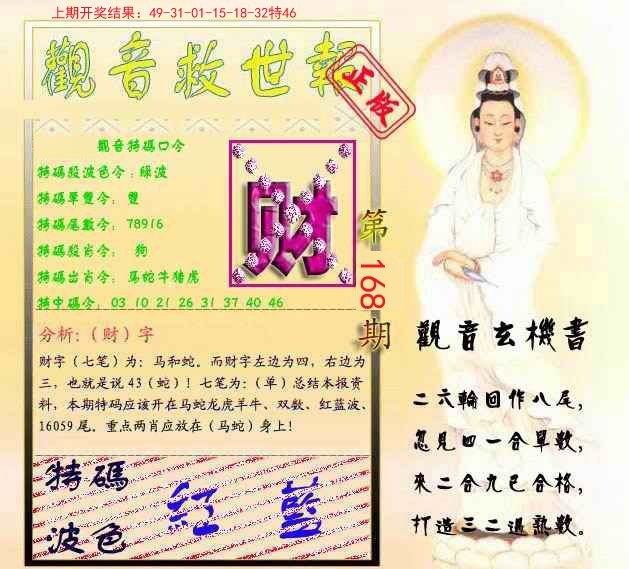 上期开奖结果：49-31-01-15-18-32特46
觀音救世報
正版
觀音特碼口令
特碼段波色令：綠波
特碼單雙令： 雙
特碼尾數令： 78916
特碼段肖令： 狗
特碼出肖令： 馬蛇牛猪虎
特中碼令： 03 10 21 26 31 37 40 46
财
第168期
分析：（财）字
财字（七笔）为：马和蛇。而财字左边为四，右边为
三，也就是说 43（蛇）！七笔为：（单）总结本报资
料，本期特码应该开在马蛇龙虎羊牛、双数、红蓝波、
16059 尾。重点两肖应放在（马蛇）身上！
特碼
波色
红 蓝
觀音玄機書
二六輪回作八尾，
忽見四一合單數，
來二合九已合格，
打造三二過熟數。